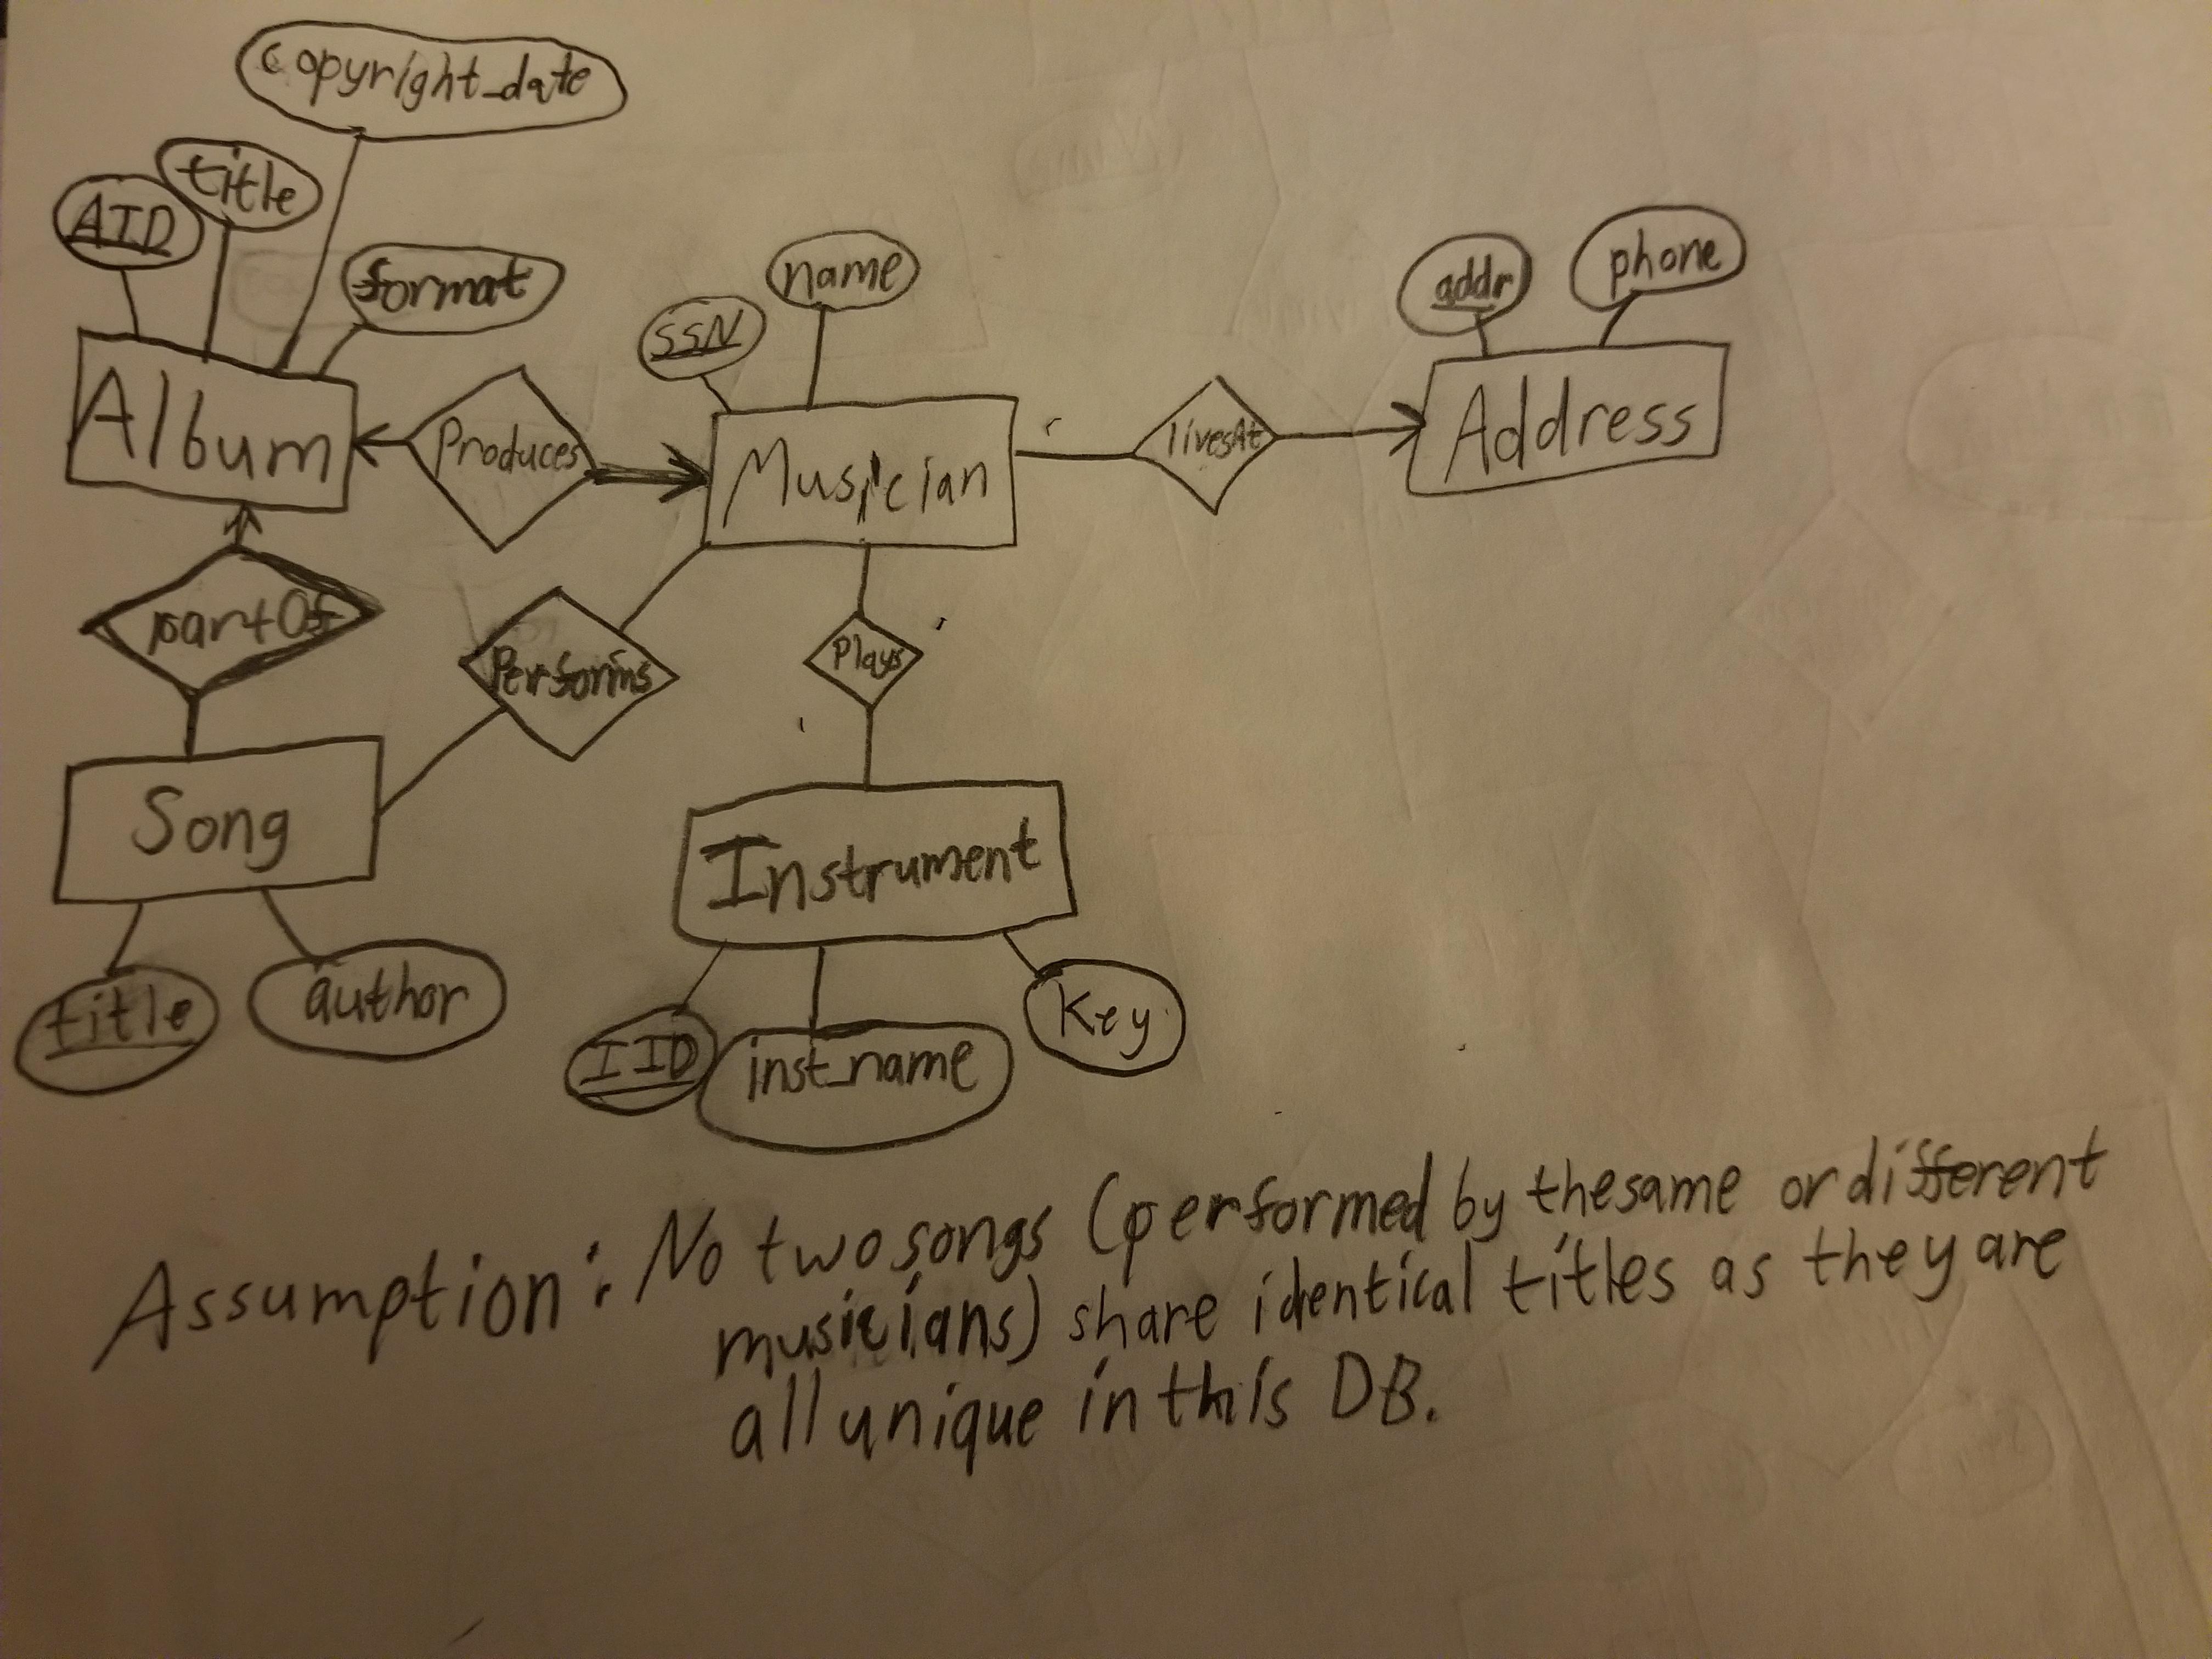 copyright_date
title
AID
format
name
SSN
addr
phone
Album
Produces
Musician
livesAt
Address
partOf
Performs
Plays
Song
Instrument
title
author
IID
inst_name
Key
Assumption: No two songs (performed by the same or different
musicians) share identical titles as they are
all unique in this DB.